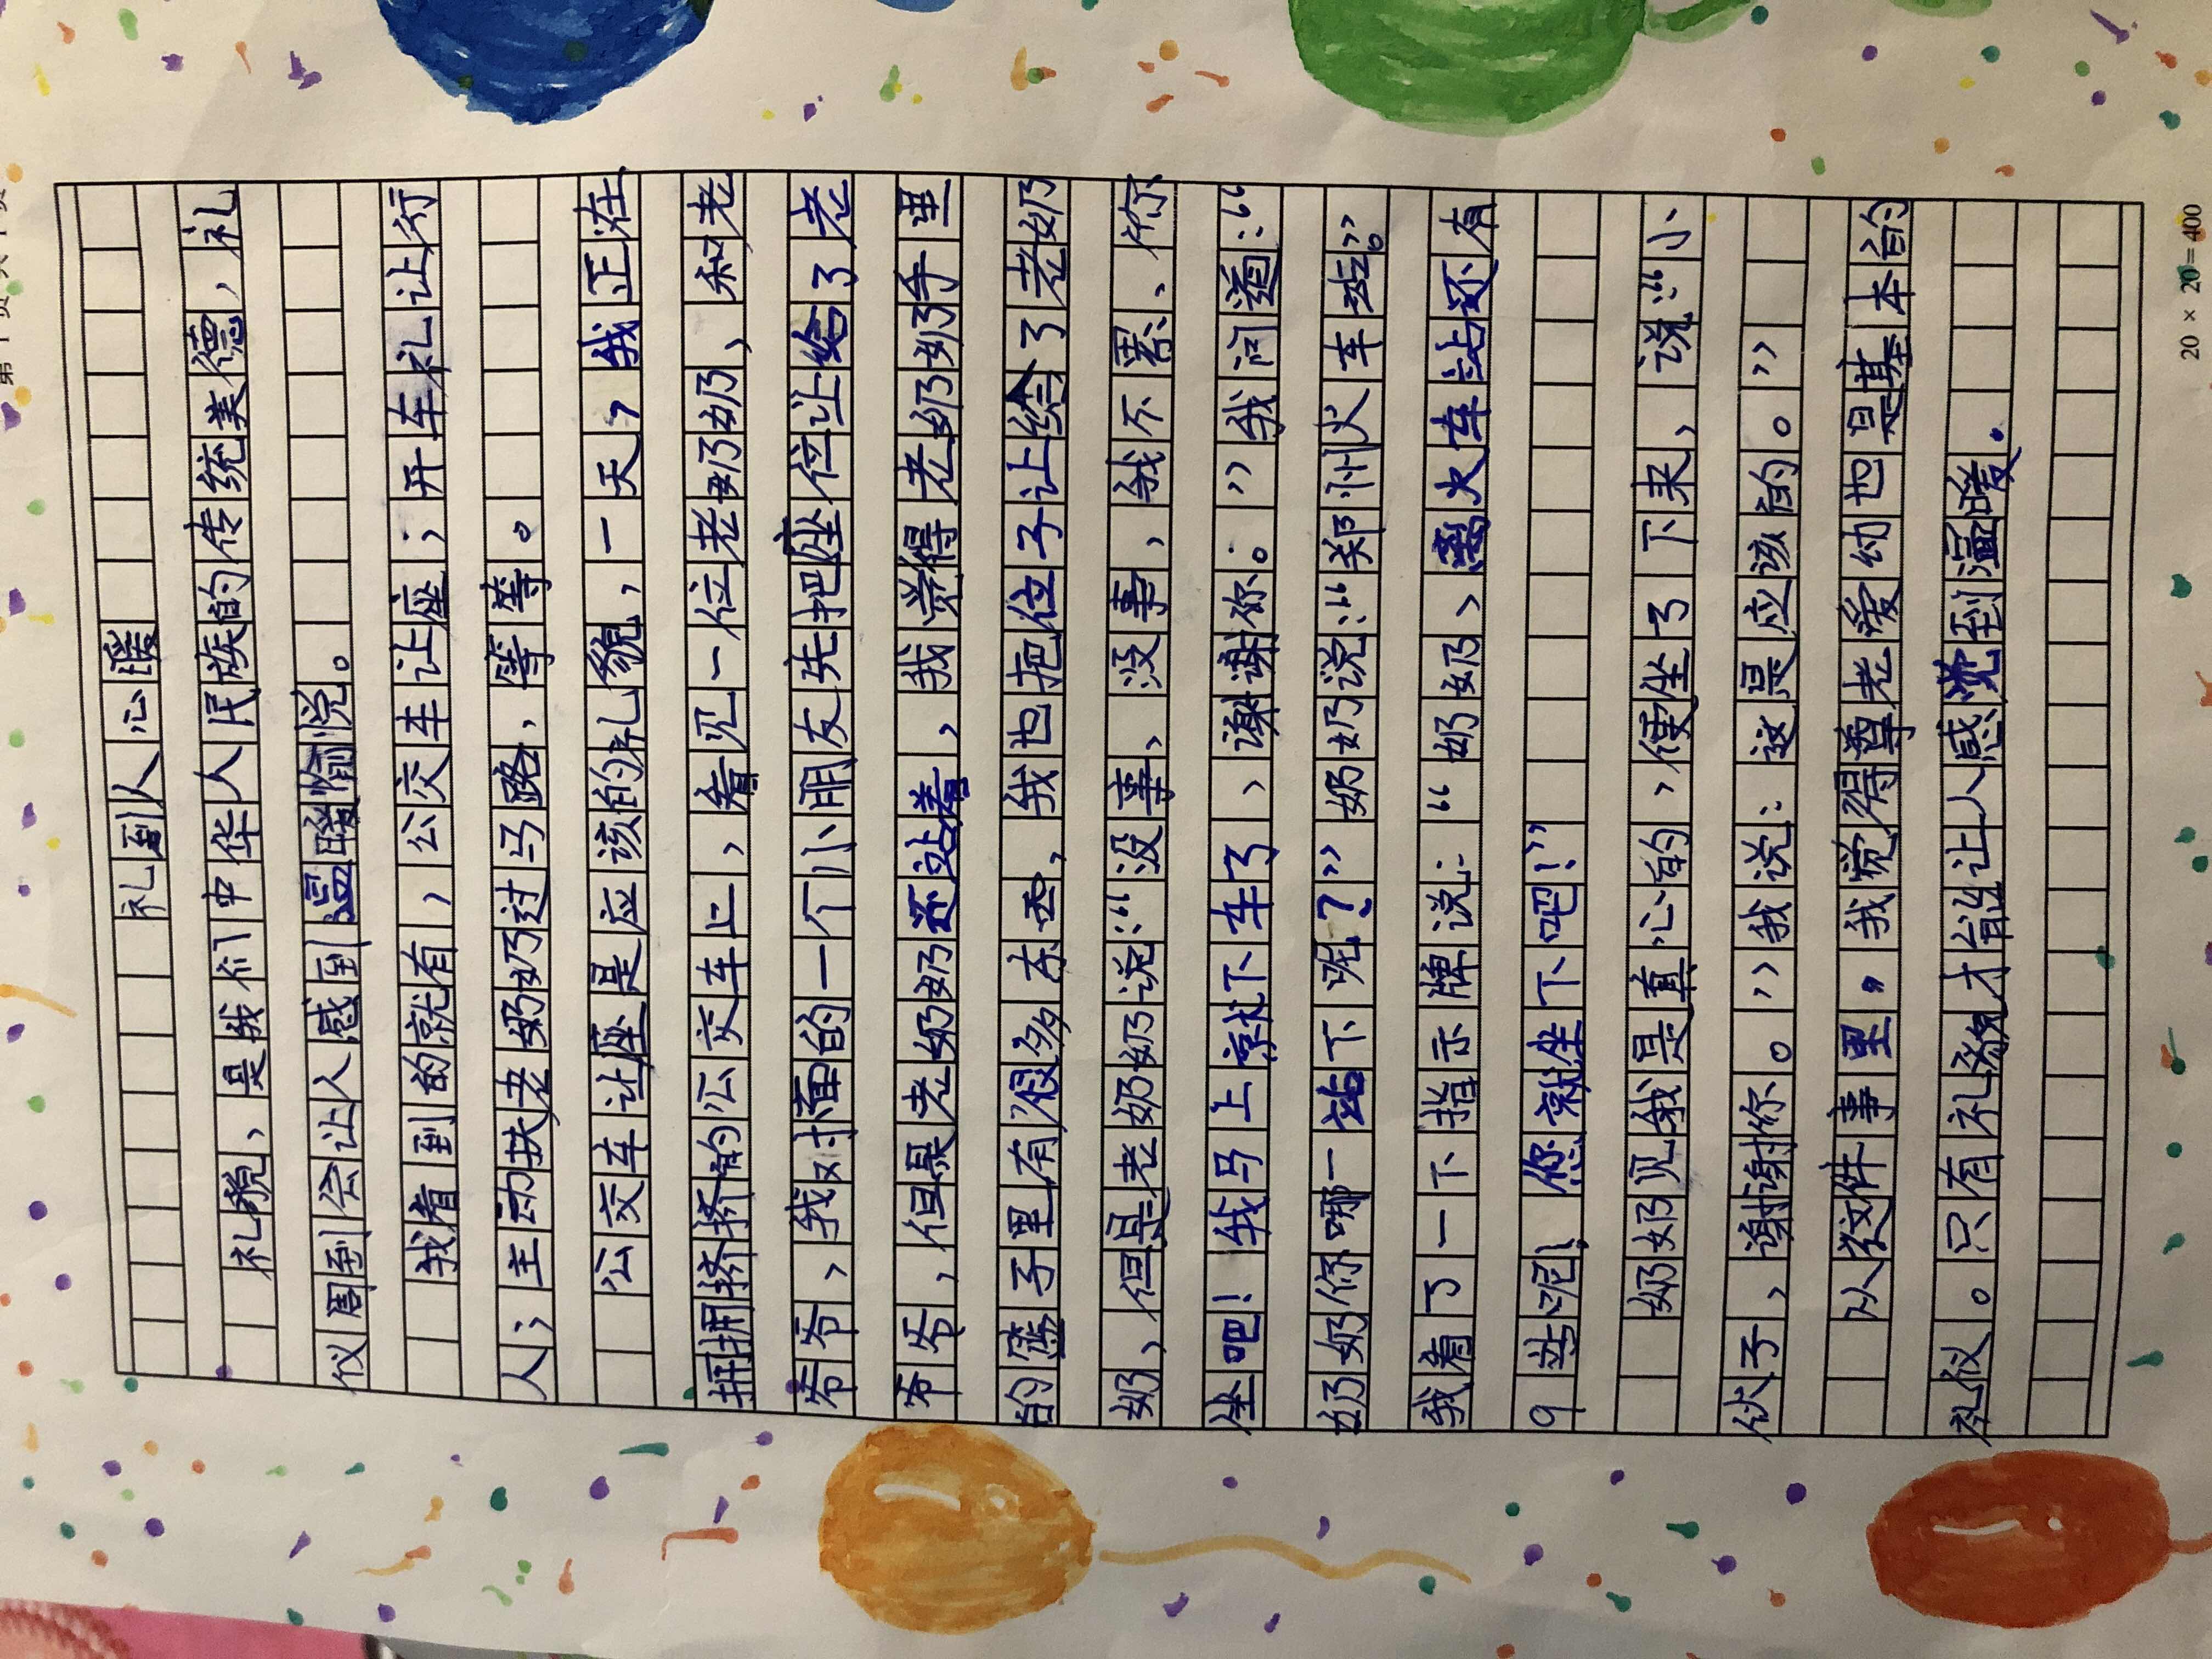 礼到人心暖
礼貌、是我们中华人民族的传统美德，礼
仪周到会让人感到温暖愉悦。
我看到的就有，公交车让座；开车礼让行
人；主动扶老奶奶过马路，等等。
公交车让座是应该的礼貌，一天，我正在
拥拥挤挤的公交车上，看见一位老奶奶、和老
爷爷，我对面的一个小朋友先把座位让给了老
爷爷，但是老奶奶还站着，我觉得老奶奶手里
的篮子里有很多东西，我也把位子让给了老奶
奶、但是老奶奶说：“没事、没事，我不累、你
坐吧！我马上就下车了、谢谢你。”我问道：“
奶奶你哪一站下呢？”奶奶说：“郑州火车站。”
我看了一下指示牌说：“奶奶、离火车站还有
9站呢！您就坐下吧！”
奶奶见我是真心的，便坐了下来，说：“小
伙子，谢谢你。”我说：这是应该的。”
从这件事里，我觉得尊老爱幼也是基本的
礼仪。只有礼貌才能让人感觉到温暖。
20 × 20 = 400